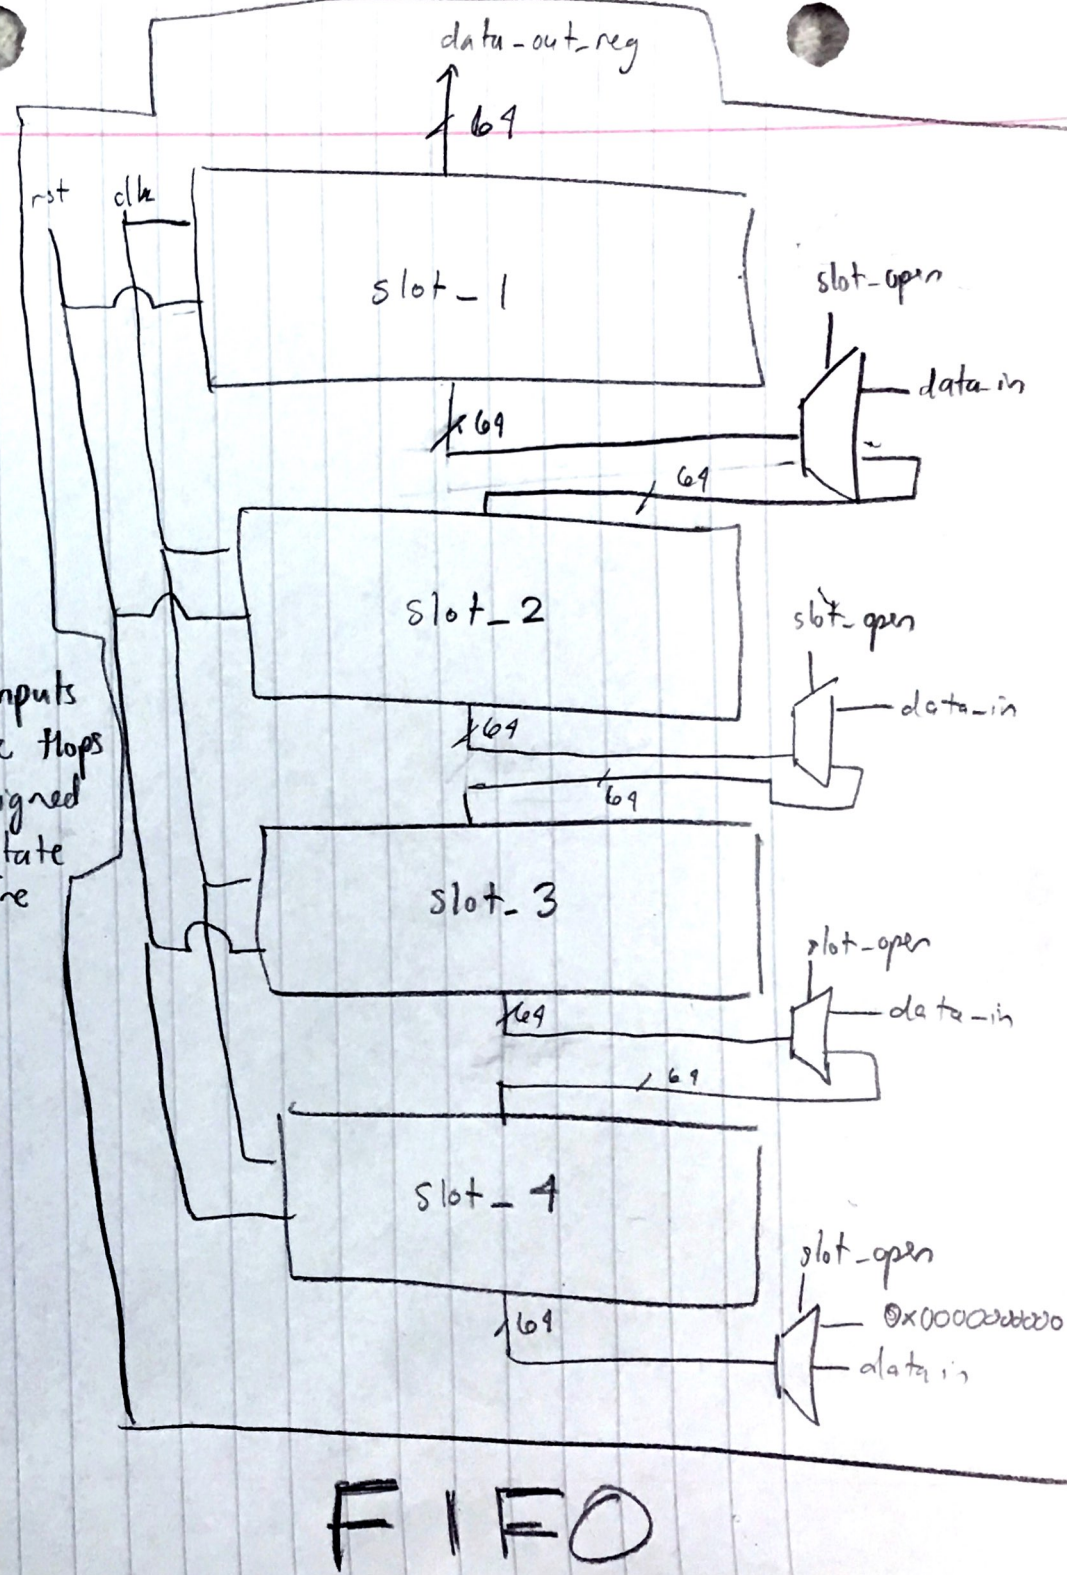 data_out_reg
64
rst
clk
slot_1
slot_open
data_in
64
64
slot_2
slot_open
data_in
64
64
nputs
flops
igned
tate
re
slot_3
slot_open
data_in
64
64
slot_4
slot_open
0x0000000000
data_in
64
FIFO